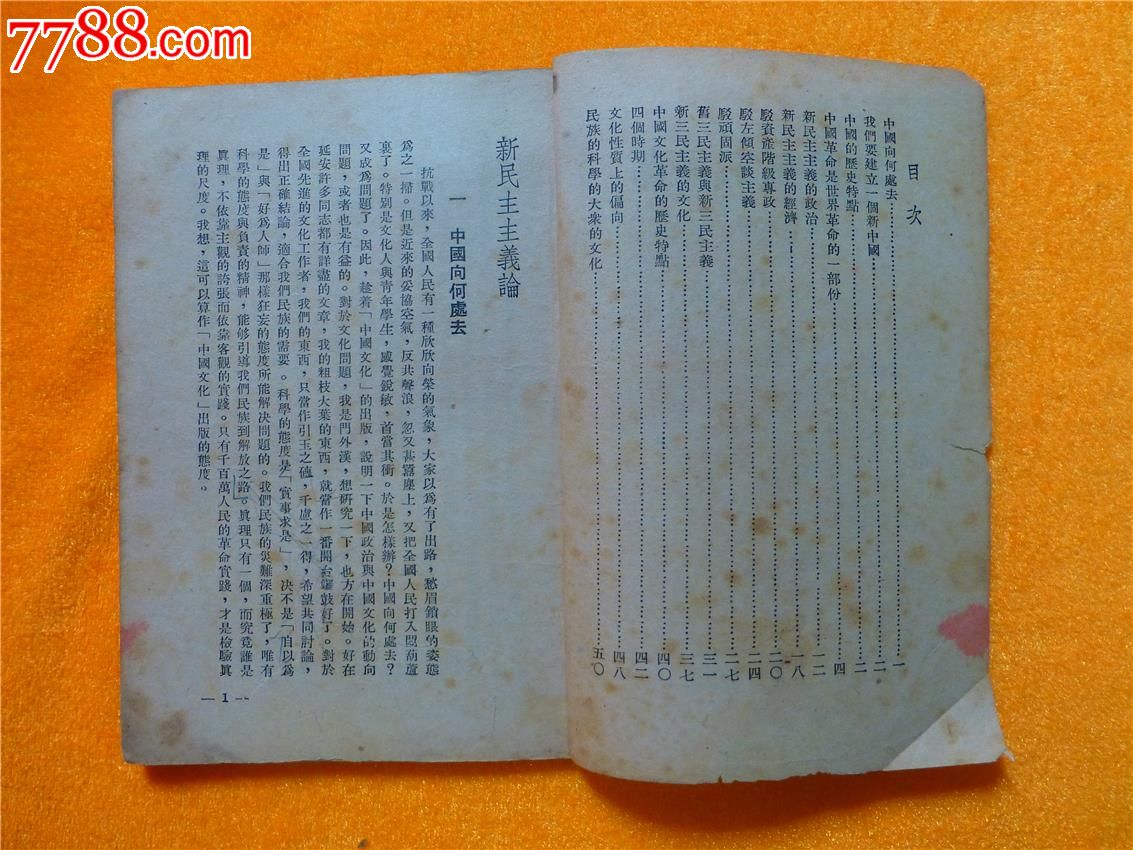 7788.com
目次
中國向何處去……一
我們要建立一個新中國……二
中國的歷史特點……二
中國革命是世界革命的一部份……四
新民主主義的政治……一二
新民主主義的經濟……一八
駁資產階級專政……二〇
駁左傾空談主義……二四
駁頑固派……二七
舊三民主義與新三民主義……三一
新三民主義的文化……三七
中國文化革命的歷史特點……四〇
四個時期……四二
文化性質上的偏向……四八
民族的科學的大衆的文化……五〇
新民主主義論
一 中國向何處去
抗戰以來，全國人民有一種欣欣向榮的氣象，大家以爲有了出路，愁眉鎖眼的姿態
爲之一掃。但是近來的妥協空氣，反共聲浪，忽又甚囂塵上，又把全國人民打入悶葫蘆
裏了。特別是文化人與青年學生，感覺銳敏，首當其衝。於是怎樣辦？中國向何處去？
又成爲問題了。因此，趁着「中國文化」的出版，說明一下中國政治與中國文化的動向
問題，或者也是有益的。對於文化問題，我是門外漢，想研究一下，也方在開始。好在
延安許多同志都有詳盡的文章，我的粗枝大葉的東西，就當作一番開台鑼鼓好了。對於
全國先進的文化工作者，我們的東西，只當作引玉之磚，千慮之一得，希望共同討論，
得出正確結論，適合我們民族的需要。科學的態度是「實事求是」，決不是「自以爲
是」與「好爲人師」那樣狂妄的態度所能解決問題的。我們民族的災難深重極了，唯有
科學的態度與負責的精神，能够引導我們民族到解放之路。眞理只有一個，而究竟誰是
眞理，不依靠主觀的誇張而依靠客觀的實踐。只有千百萬人民的革命實踐，才是檢驗眞
理的尺度。我想，這可以算作「中國文化」出版的態度。
— 1 —